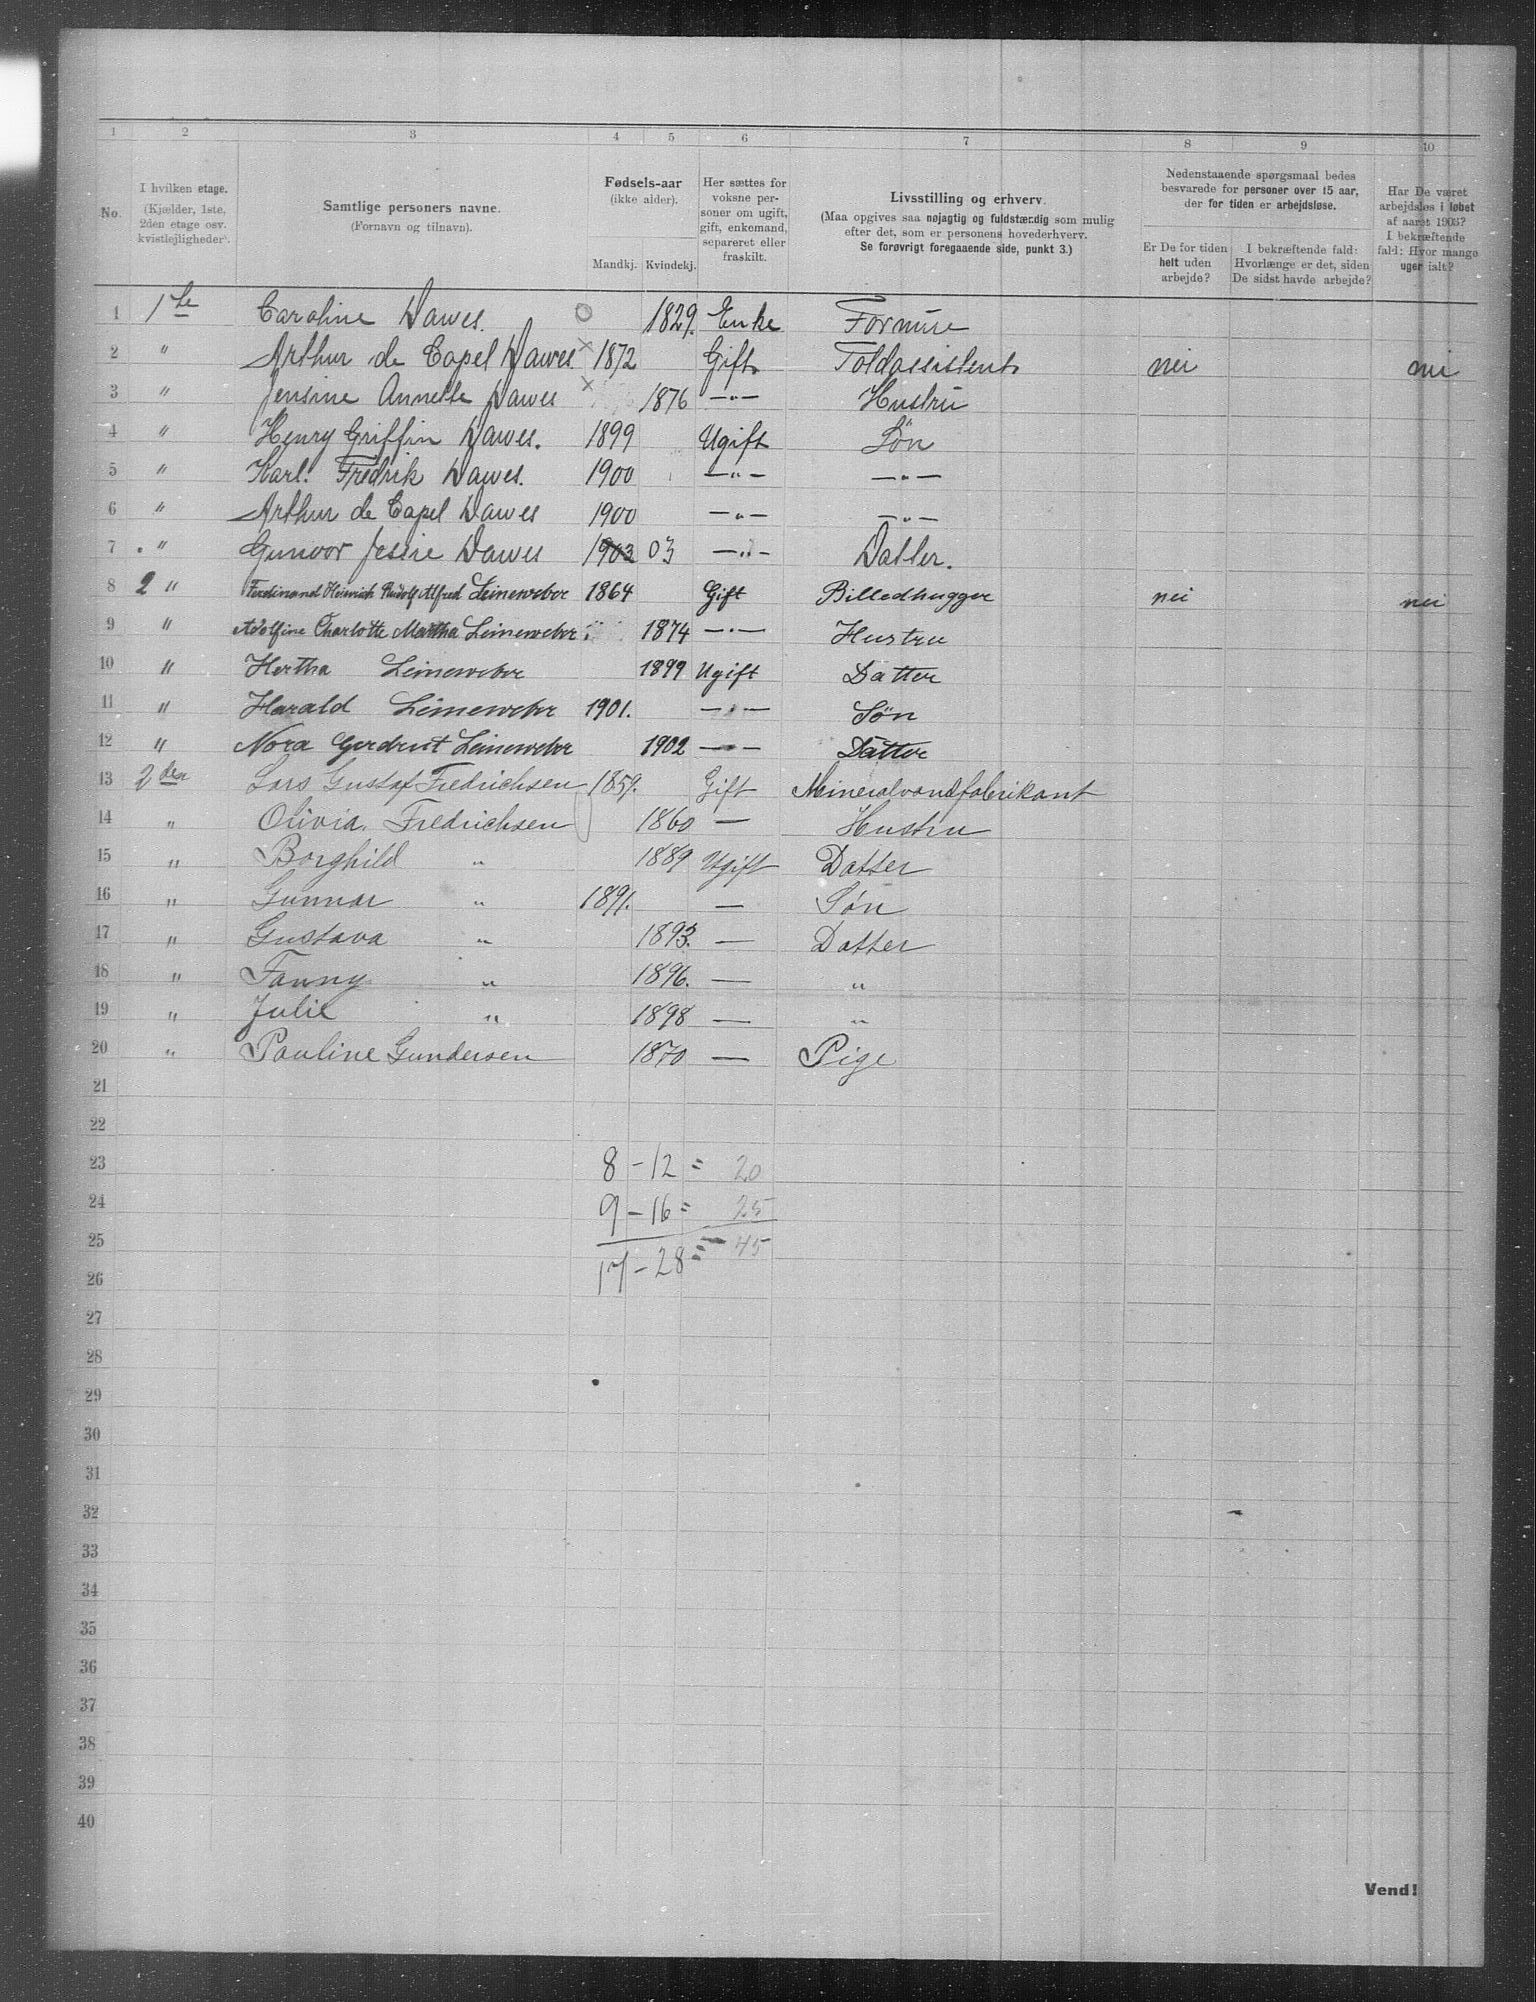 1 2 3 4 5 6 7 8 9 10
No.
I hvilken etage.
(Kjælder, 1ste,
2den etage osv.
kvistlejligheder).
Samtlige personers navne.
(Fornavn og tilnavn).
Fødsels-aar
(ikke alder).
Mandkj. Kvindekj.
Her sættes for
voksne per-
soner om ugift,
gift, enkemand,
separeret eller
fraskilt.
Livsstilling og erhverv.
(Maa opgives saa nøjagtig og fuldstændig som mulig
efter det, som er personens hovederhverv.
Se forøvrigt foregaaende side, punkt 3.)
Nedenstaaende spørgsmaal bedes
besvarede for personer over 15 aar,
der for tiden er arbejdsløse.
Er De for tiden
helt uden
arbejde?
I bekræftende fald:
Hvorlænge er det, siden
De sidst havde arbejde?
Har De været
arbejdsløs i løbet
af aaret 1903?
I bekræftende
fald: Hvor mange
uger ialt?
1 1ste Caroline Dawes. O 1829. Enke Formue
2 " Arthur de Capel Dawes. × 1872 Gift Toldassistent nei nei
3 " Jensine Annette Dawes × 1876 —"— Hustru
4 " Henry Griffin Dawes. 1899 Ugift Søn
5 " Karl Fredrik Dawes. 1900 —"— —"—
6 " Arthur de Capel Dawes 1900 —"— —"—
7 " Gunvor Jessie Dawes 1903 03 —"— Datter.
8 2 " Ferdinand Heinrich Rudolf Alfred Leineweber 1864 Gift Billedhugger nei nei
9 " Adolfine Charlotte Martha Leineweber 1874 —"— Hustru
10 " Hertha Leineweber 1899 Ugift Datter
11 " Harald Leineweber 1901. —"— Søn
12 " Nora Gerdrut Leineweber 1902 —"— Datter
13 2den Lars Gustaf Fredrichsen 1859. Gift Mineralvandfabrikant
14 " Olivia Fredrichsen 1860 — Hustru
15 " Borghild " 1889 Ugift Datter
16 " Gunnar " 1891. — Søn
17 " Gustava " 1893. — Datter
18 " Fanny " 1896. — "
19 " Julie " 1898 — "
20 " Pauline Gundersen 1870 — Pige
21
22
23 8 – 12 = 20
24 9 – 16 = 25
25 17 – 28 = 45
26
27
28
29
30
31
32
33
34
35
36
37
38
39
40
Vend!